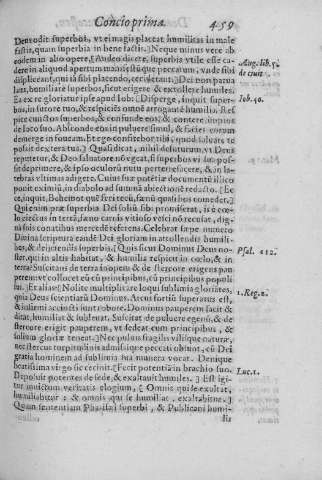 Concio prima. 459
Deus odit superbos, vt ei magis placeat humilitas in male
factis, quam superbia in bene factis. ] Neque minus vere ab
eodem in alio opere, [ Audeo dicere, superbis vtile esse ca-
dere in aliquod apertum manifestumque peccatum, vnde sibi
displiceant, qui iã sibi placendo, ceciderant. ] Dei non parua
laus, homiliare superbos, sicut erigere & extollere humiles.
Ea ex re gloriatur ipse apud Iob: [ Disperge, inquit super-
bos, in furore tuo, & respiciẽs omnẽ arrogantẽ humilia. Res
pice cunctos superbos, & confunde eos, & contere impios
in loco suo. Absconde eos in puluere simul, & facies eorum
demerge in foueam. Et ego confitebor tibi, quod saluare te
possit dextera tua. ] Quasi dicat, nihil
repetetur, & Deo saluatore
sit deprimere, & ipso oculorũ nutu perterrefacere, & in la-
tebras vltimas adigere. Cuius suæ potẽtiæ documentũ illico
ponit eximiũ, in diabolo ad summã abiectionẽ redacto. [ Ec
ce, inquit, Behemot quẽ feci tecũ, fænũ quasi bos comedet. ]
Qui enim præ superbia Dei soliũ sibi promiserat, is è cœ-
lo eiectus in terrã, fæno carnis vitioso vesci nõ recusat, dig-
nis sois conatibus mercedẽ referens. Celebrat sæpe numero
Diuina scriptura eandẽ Dei gloriam in attollendis humili-
bus, & deijciendis superbis. [ Quis sicut Dominus Deus no-
ster, qui in altis habitat, & humilia respicit in cœlo, & in
terra? Suscitans de terra inopem, & de stercore erigens pau-
perem: vt collocet eũ cũ principibus, cũ principibus populi
sui. ] Et alias: [ Nolite multiplicare loqui sublimia gloriãtes,
quia Deus scientiarũ Dominus. Arcus fortiũ superatus est,
& infirmi accincti sunt robore. Dominus pauperem facit &
ditat, humiliat & subleuat. Suscitat de puluere egenũ, & de
stercore erigit pauperem, vt sedeat cum principibus, &
solium gloriæ teneat. ] Nec pulsum fragilis vilisque naturæ,
nec stercus turpitudinis admissique peccati obstat, cũ Dei
gratia hominem ad sublimia sua munera vocat. Denique
beatissima virgo sic cecinit. [ Fecit potentiã in brachio suo.
Deposuit potentes de sede, & exaltauit humiles. ] Est igi-
tur inuictum veritatis elogium, [ Omnis qui se exaltat,
humiliabitur: & omnis qui se humiliat, exaltabitur. ]
Quam sententiam Pharisæi superbi, & Publicani humi-
lis
Aug. lib. 5.
de ciuit
Iob. 40.
Psal. 112.
1. Reg. 2.
Luc. 1.